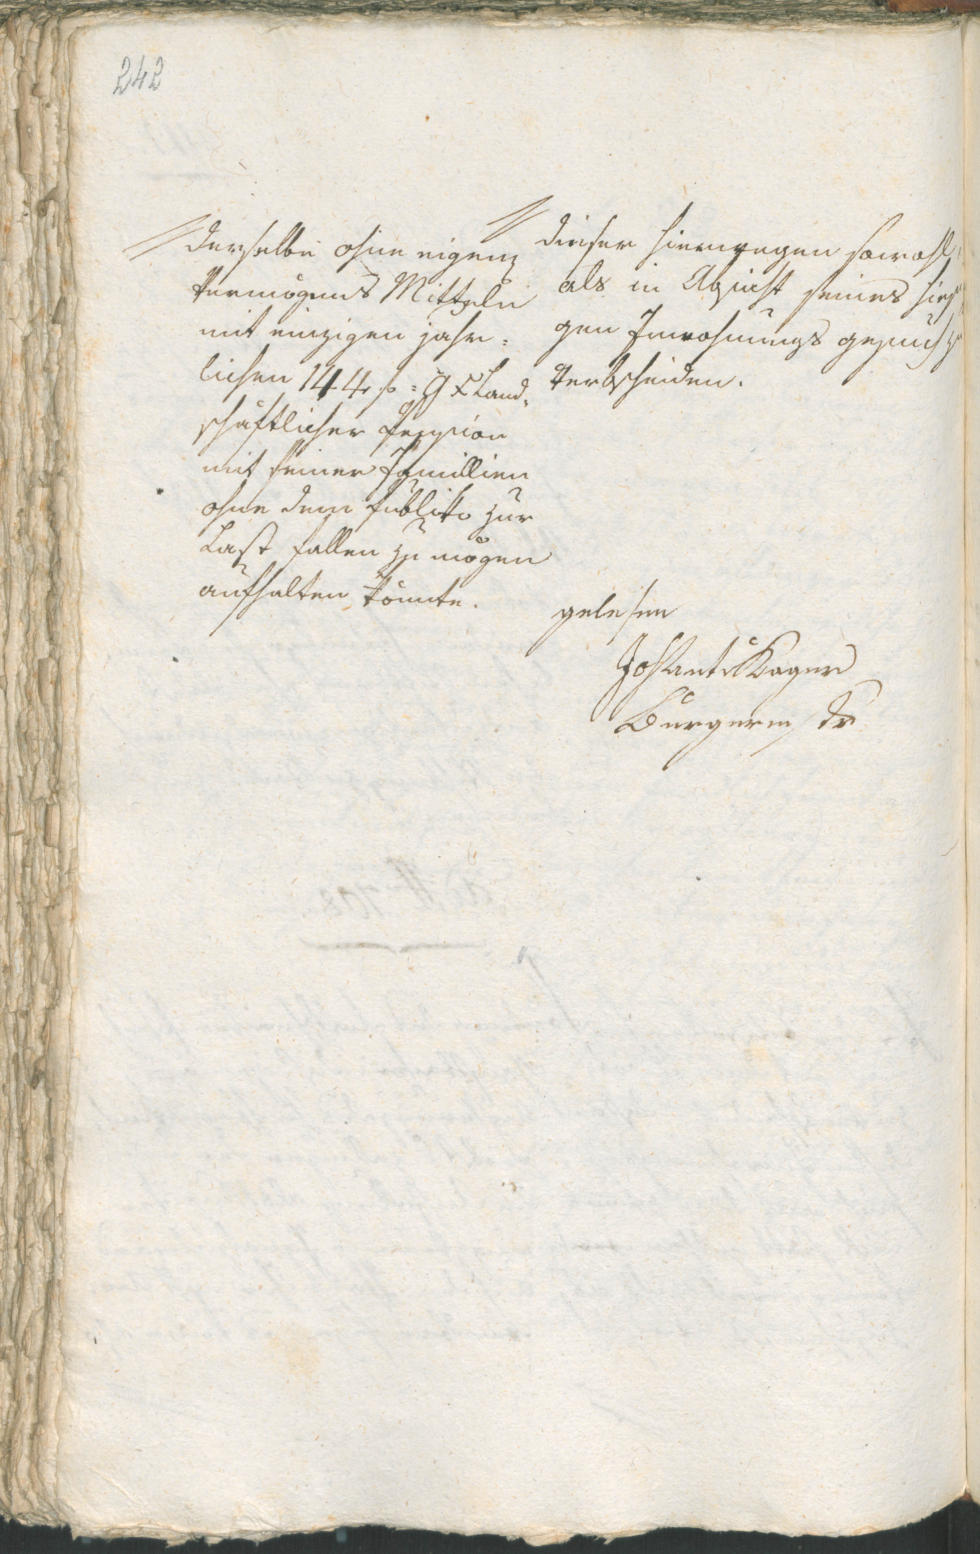 242
derselbe ohne eigene
Vermögens Mitteln
mit einzigen jähr-
lichen 144 f: Land-
schäftlicher Pension
mit seiner Famillien
ohne dem Publiko zur
Last fallen zu mögen
aufhalten könnte.
dieser hierwegen sowohl,
als in Absicht seines hiesi
gen Inwohnungs gesuch zu
verbscheiden.
gelesen
Joh Ant v Bager
Burgermstr